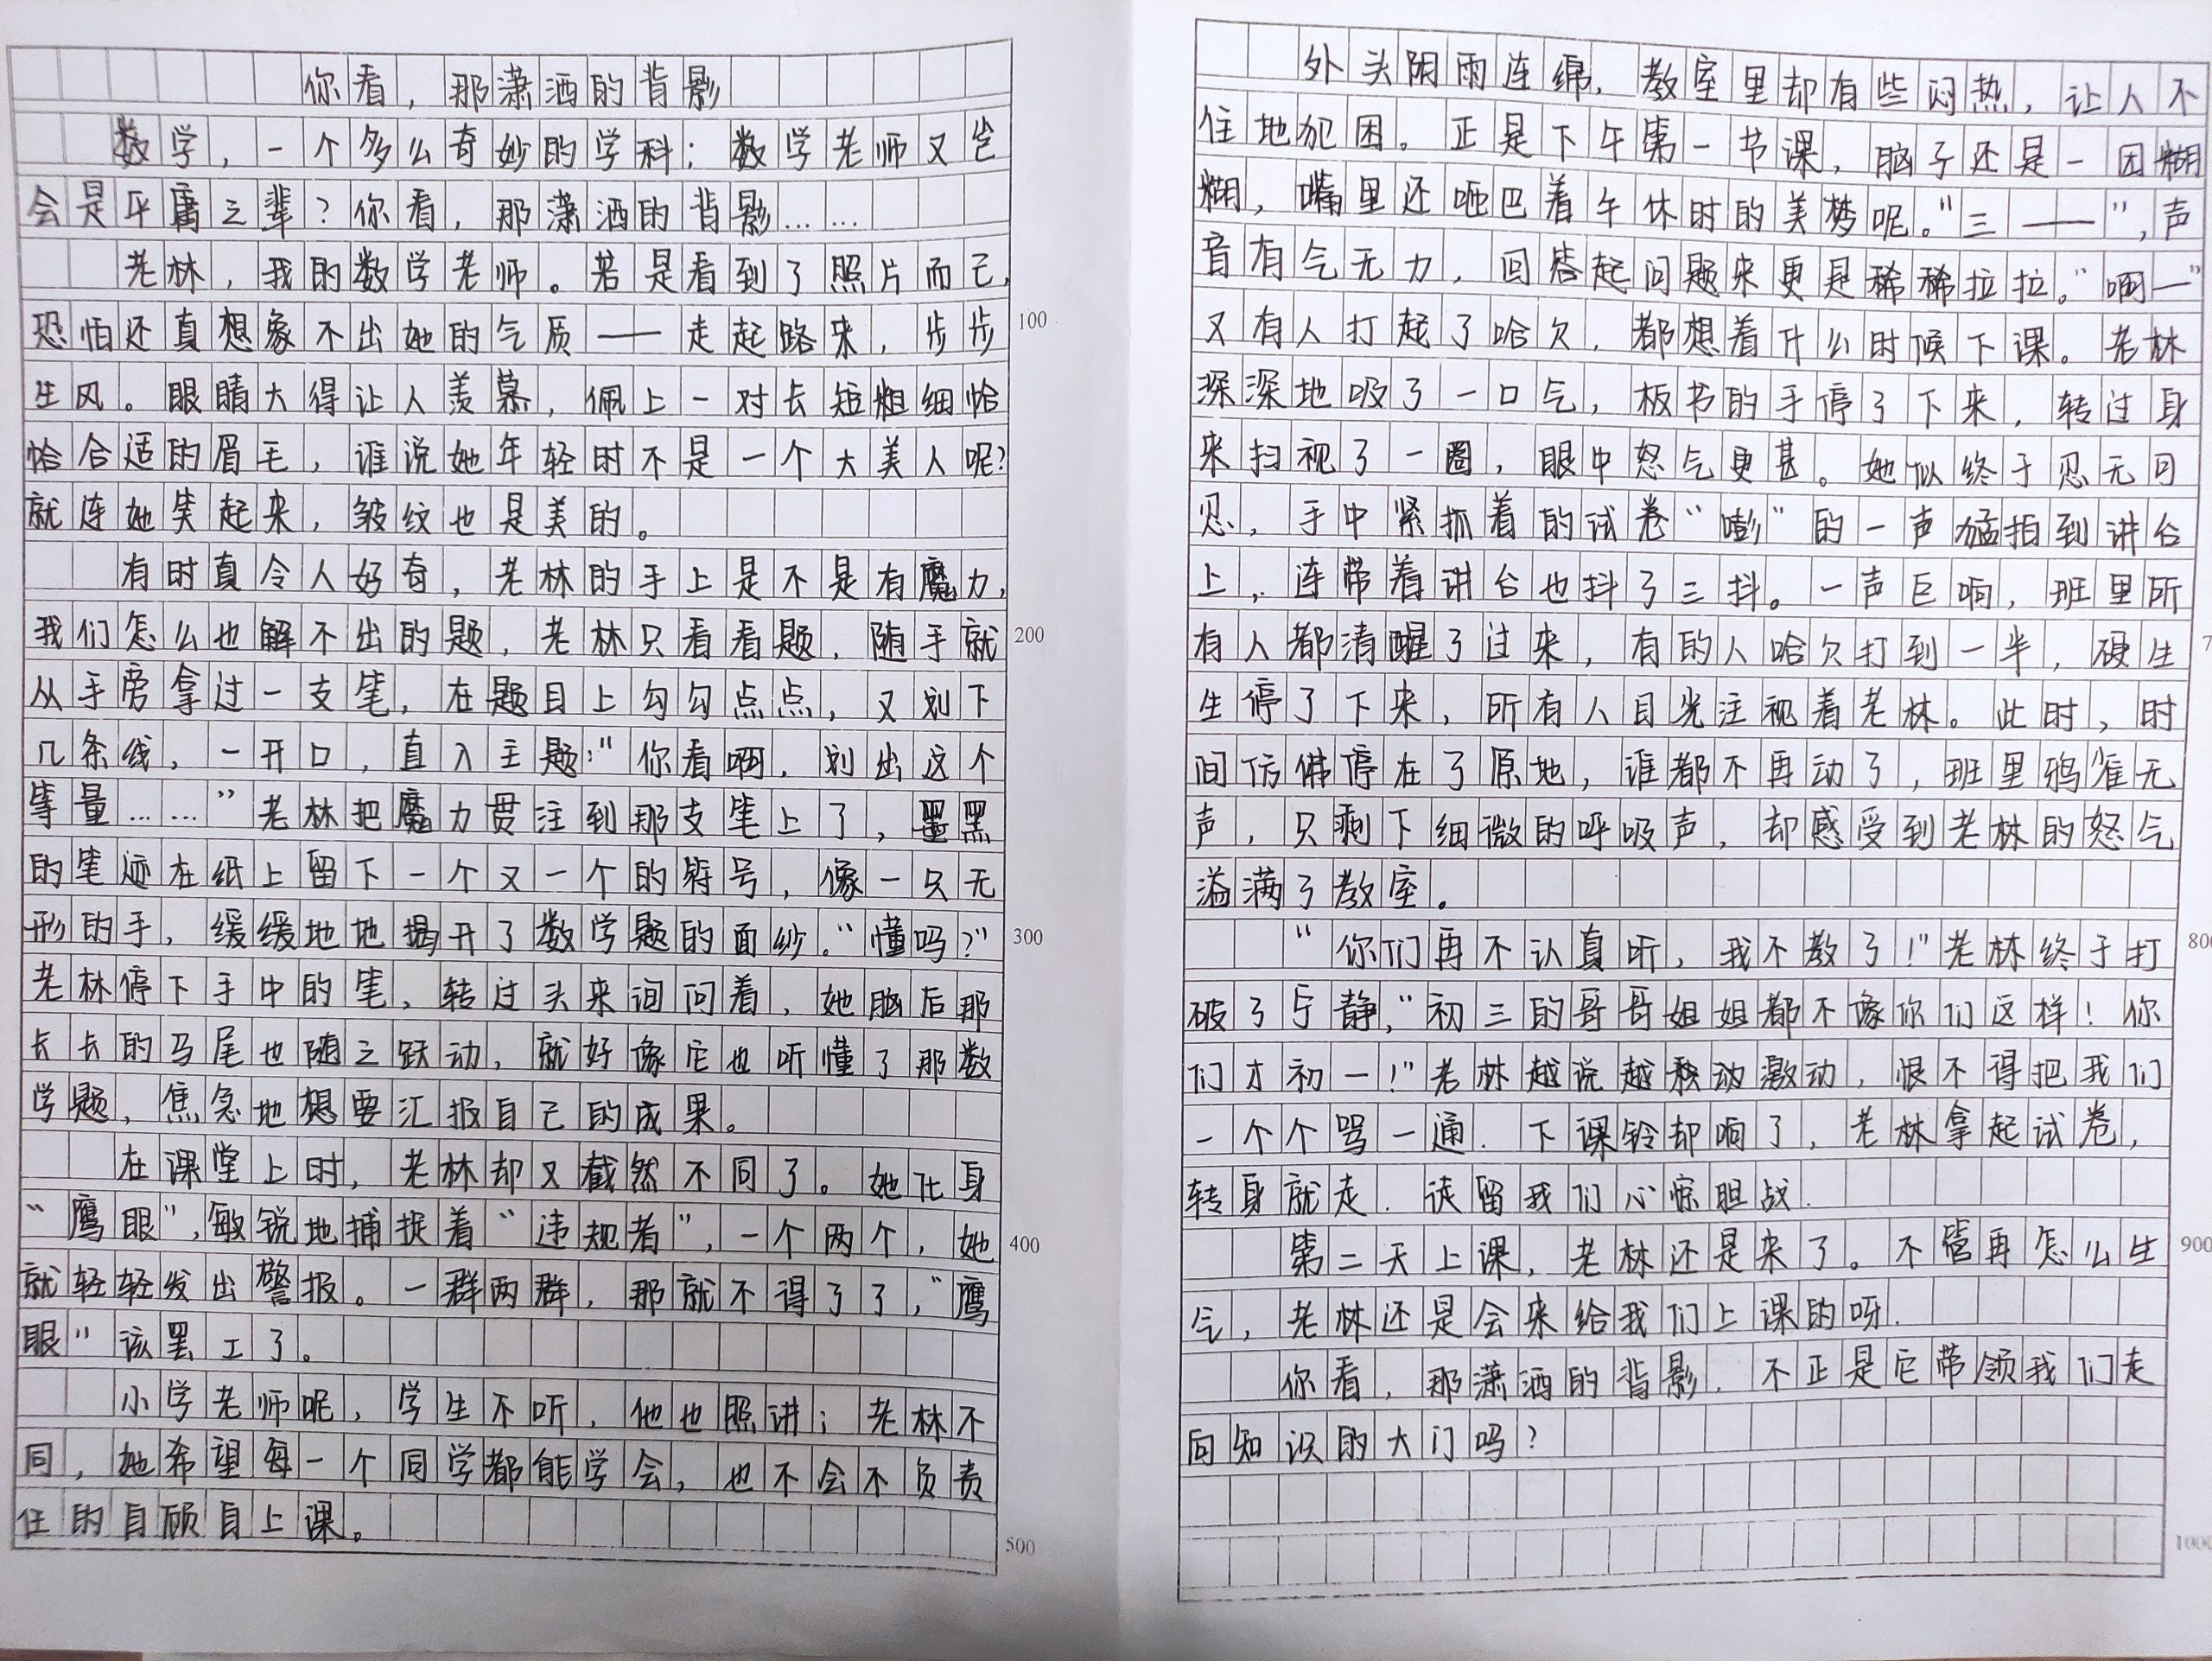 你看，那潇洒的背影
数学，一个多么奇妙的学科；数学老师又岂
会是平庸之辈？你看，那潇洒的背影……
老林，我的数学老师。若是看到了照片而已，
恐怕还真想象不出她的气质——走起路来，步步
生风。眼睛大得让人羡慕，佩上一对长短粗细恰
恰合适的眉毛，谁说她年轻时不是一个大美人呢？
就连她笑起来，皱纹也是美的。
有时真令人好奇，老林的手上是不是有魔力，
我们怎么也解不出的题，老林只看看题，随手就
从手旁拿过一支笔，在题目上勾勾点点，又划下
几条线，一开口，直入主题：“你看啊，划出这个
等量……”老林把魔力贯注到那支笔上了，墨黑
的笔迹在纸上留下一个又一个的符号，像一只无
形的手，缓缓地地揭开了数学题的面纱。“懂吗？”
老林停下手中的笔，转过头来询问着，她脑后那
长长的马尾也随之跃动，就好像它也听懂了那数
学题，焦急地想要汇报自己的成果。
在课堂上时，老林却又截然不同了。她化身
“鹰眼”，敏锐地捕捉着“违规者”，一个两个，她
就轻轻发出警报。一群两群，那就不得了了，“鹰
眼”该罢工了。
小学老师呢，学生不听，他也照讲；老林不
同，她希望每一个同学都能学会，也不会不负责
任的自顾自上课。
100
200
300
400
500
外头阴雨连绵，教室里却有些闷热，让人不
住地犯困。正是下午第一节课，脑子还是一团糊
糊，嘴里还咂巴着午休时的美梦呢。“三——”，声
音有气无力，回答起问题来更是稀稀拉拉。“啊—”
又有人打起了哈欠，都想着什么时候下课。老林
深深地吸了一口气，板书的手停了下来，转过身
来扫视了一圈，眼中怒气更甚。她似终于忍无可
忍，手中紧抓着的试卷“嘭”的一声猛拍到讲台
上，连带着讲台也抖了三抖。一声巨响，班里所
有人都清醒了过来，有的人哈欠打到一半，硬生
生停了下来，所有人目光注视着老林。此时，时
间仿佛停在了原地，谁都不再动了，班里鸦雀无
声，只剩下细微的呼吸声，却感受到老林的怒气
溢满了教室。
“你们再不认真听，我不教了！”老林终于打
破了宁静，“初三的哥哥姐姐都不像你们这样！你
们才初一！”老林越说越激动，恨不得把我们
一个个骂一通．下课铃却响了，老林拿起试卷，
转身就走．徒留我们心惊胆战．
第二天上课，老林还是来了。不管再怎么生
气，老林还是会来给我们上课的呀．
你看，那潇洒的背影．不正是它带领我们走
向知识的大门吗？
7
80
900
1000